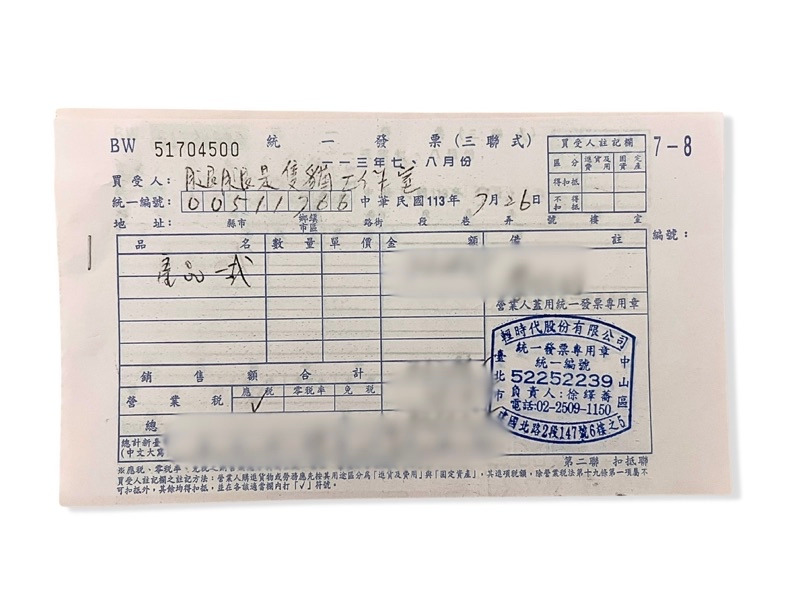 BW 51704500 統一發票(三聯式)
一一三年七、八月份
7-8
買受人註記欄
區分 進貨及費用 固定資產
得扣抵
不得扣抵
買受人：腿腿是隻貓工作室
統一編號：00511366 中華民國113年7月26日
地址： 縣市 鄉鎮市區 路街 段 巷 弄 號 樓 室
品名 數量 單價 金額 備註 編號：
產品一式
營業人蓋用統一發票專用章
輕時代股份有限公司
統一發票專用章
統一編號
52252239
負責人：徐繹蕎
電話:02-2509-1150
臺北市
中山區
建國北路2段147號6樓之5
銷售額合計
營業稅 應稅 ✓ 零稅率 免稅
總
總計新臺
(中文大寫
第二聯 扣抵聯
※應稅、零稅率、免稅之銷售額應
買受人註記欄之註記方法：營業人購進貨物或勞務應先按其用途區分為「進貨及費用」與「固定資產」，其進項稅額，除營業稅法第十九條第一項屬不
可扣抵外，其餘均得扣抵，並在各該適當欄內打「√」符號。